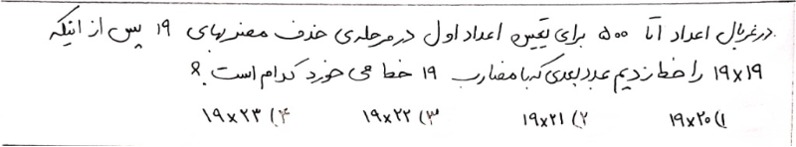 در غربال اعداد ۱ تا ۵۰۰ برای تعیین اعداد اول در مرحله‌ی حذف مضربهای ۱۹ پس از اینکه
۱۹×۱۹ را خط زدیم عدد بعدی که با مضارب ۱۹ خط می خورد کدام است؟
۱) ۱۹×۲۰ ۲) ۱۹×۲۱ ۳) ۱۹×۲۲ ۴) ۱۹×۲۳